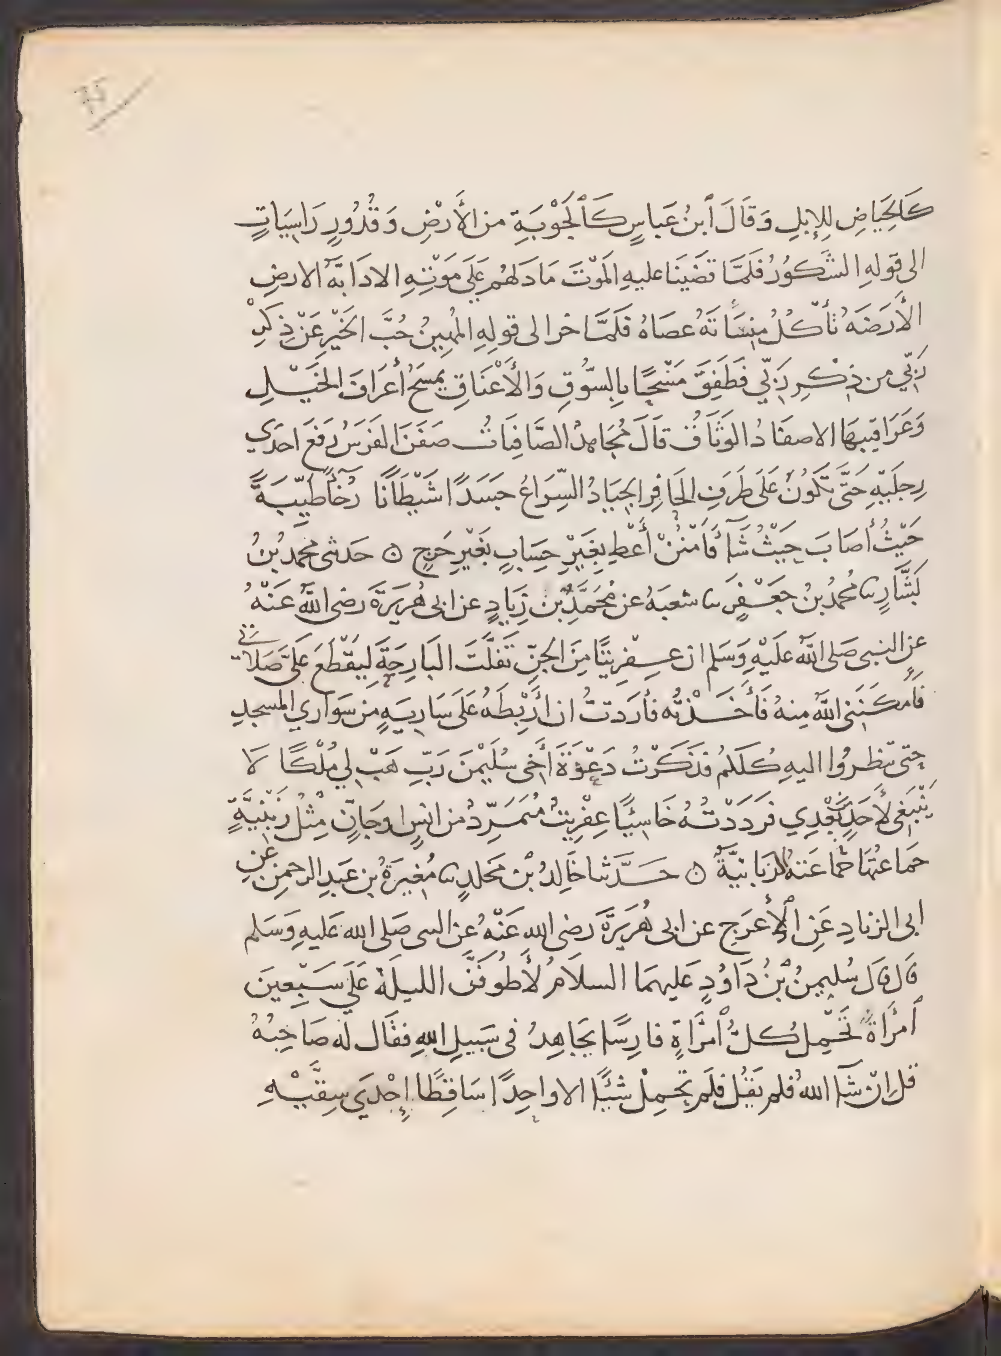 75
كَالحِيَاضِ لِلإِبِلِ وَقَالَ ابنُ عَبَاسٍ كَالجَوْبَةِ من الأَرْضِ وَقُدُورٍ رَاسِيَاتٍ
الى قوله الشَّكُورُ فَلَمَّا قضَيْنَا عليه المَوْتَ مَا دَلهُم عَلَى مَوْتِهِ الا دَابَّةُ الارضِ
الأَرَضَهُ تأكُلُ مِنسَأتَهُ عصَاهُ فَلَمَّا خر الى قولِهِ المُهِينُ حُبَّ الخَيْرِ عَنْ ذِكْرِ
رَبِّي من ذِكْرِ رَبِّي فَطَفِقَ مَسْحًا بِالسُّوقِ وَالأَعْنَاقِ يَمسَحُ أَعرَافَ الخَيْلِ
وَعَرَاقيبَهَا الاصفَادُ الوَثَاقُ قَالَ مُجَاهِدٌ الصَّافِنَاتُ صَفَنَ الفَرَسُ رَفَعَ احدَي
رِجلَيْهِ حَتَّى تَكُونُ عَلَى طَرَفِ الحَافِرِ الجِيَادُ السِّرَاعُ جَسَدًا شَيْطَانًا رُخَاءً طَيِّبَةً
حَيْثُ أَصَابَ حَيْثُ شَآءَ فَامْنُنْ أَعْطِ بِغَيْرِ حِسَابٍ بِغَيْرِ حَرَجٍ ۞ حَدثني محمد بنُ
بَشَّارٍ نا محمدُ بنُ جَعْفَرٍ نا شعبَهُ عن مُحَمَّدِ بْنِ زِيَادٍ عن ابى هُرَيرَةَ رضى اللهُ عَنْهُ
عن النبى صَلى اللهُ عَلَيْهِ وَسَلم ان عِفْرِيتًا مِنَ الجِنِّ تَفَلَّتَ البَارِحَةَ لِيَقْطَعَ عَلَىَّ صَلاتي
فَأَمكَنَنى اللهُ مِنهُ فَأَخَذْتُه فأرَدتُ ان أَرْبِطَهُ عَلَى سَارِيَهٍ من سَوَارِي المسجدِ
حتى تنظُرُوا اليهِ كُلكُم فذَكَرْتُ دَعْوَةَ أَخى سُلَيْمٰنَ رَبِّ هَبْ لِي مُلْكًا لَا
يَنْبَغى لأَحَدٍ بَعْدِي فَرَدَدْتُهُ خَاسِئًا عِفْرِيتٌ مُتَمَرِّدٌ من انسٍ او جَانٍّ مِثْلُ زِبْنِيَّةٍ
جماعتُهَا الزبَانيَّةُ ۞ حَدَّثنا خَالِدُ بْنُ مَخلدٍ نا مُغيرَةُ بن عَبدِ الرحمنِ عَنِ
ابى الزنادِ عَنِ الأَعرَجِ عن ابى هُرَيرَةَ رضى الله عَنْهُ عن النبى صَلى الله عَليهِ وَسَلم
قال قال سُليمنُ بْنُ دَاوُدٍ عَليهمَا السلَامُ لأَطُوفَنَّ الليلَةَ عَلَي سَبْعِينَ
امرَأَةً تَحْمِلُ كلُّ امرَأَةٍ فارِسًا يجَاهِدُ فى سَبيلِ اللهِ فقَال لَه صَاحِبُهُ
قل إنْ شَآ اللهُ فلم يَقُل فلَم تحمِلْ شَيْئًا الا واحِدًا سَاقِطًا إِحْدَي شِقَّيْهِ